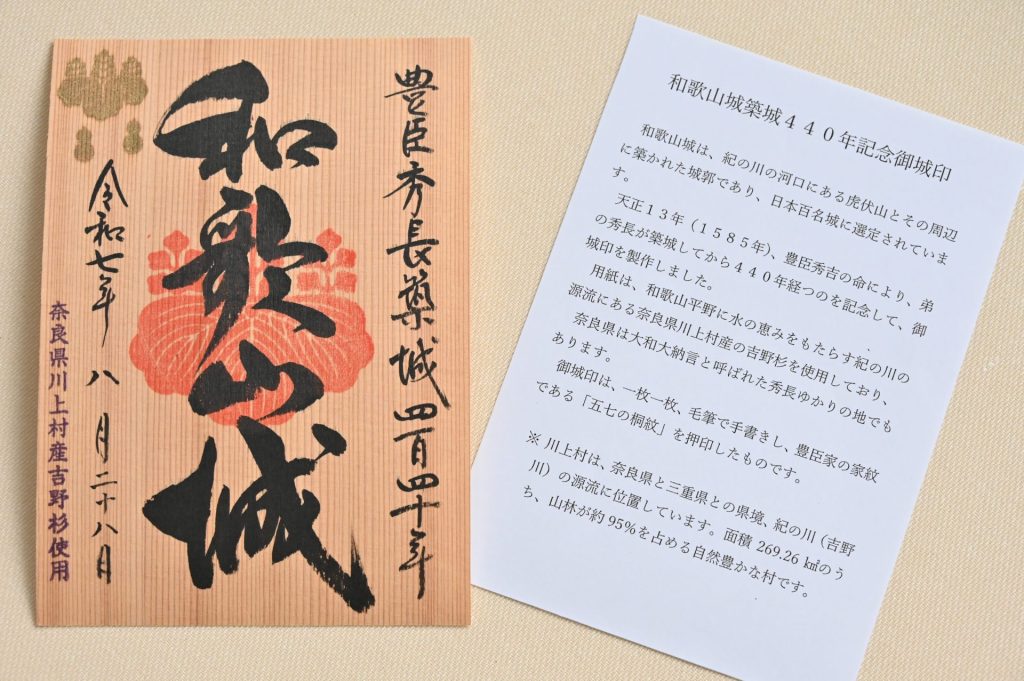 豊臣秀長築城四百四十年
和歌山城
令和七年 八月二十八日
奈良県川上村産吉野杉使用
和歌山城築城４４０年記念御城印
和歌山城は、紀の川の河口にある虎伏山とその周辺
に築かれた城郭であり、日本百名城に選定されていま
す。
天正１３年（１５８５年）、豊臣秀吉の命により、弟
の秀長が築城してから４４０年経つのを記念して、御
城印を製作しました。
用紙は、和歌山平野に水の恵みをもたらす紀の川の
源流にある奈良県川上村産の吉野杉を使用しており、
奈良県は大和大納言と呼ばれた秀長ゆかりの地でも
あります。
御城印は、一枚一枚、毛筆で手書きし、豊臣家の家紋
である「五七の桐紋」を押印したものです。
※川上村は、奈良県と三重県との県境、紀の川（吉野
川）の源流に位置しています。面積 269.26 ㎢のう
ち、山林が約 95%を占める自然豊かな村です。